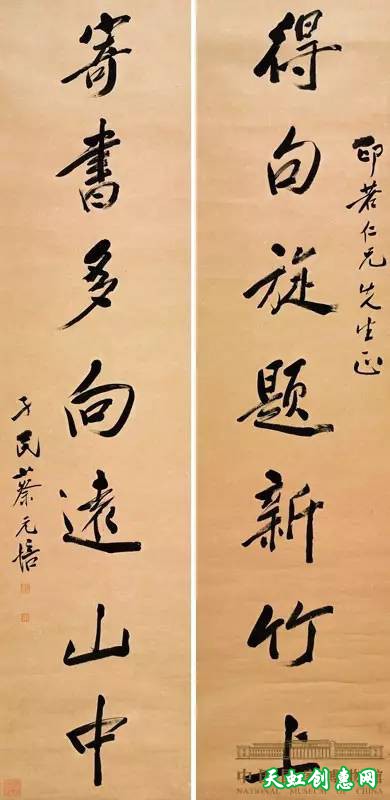 得句旋题新竹上
印若仁兄先生正
寄書多向遠山中
孑民蔡元培
NATIONAL MUSEUM OF CHINA
天虹创惠网